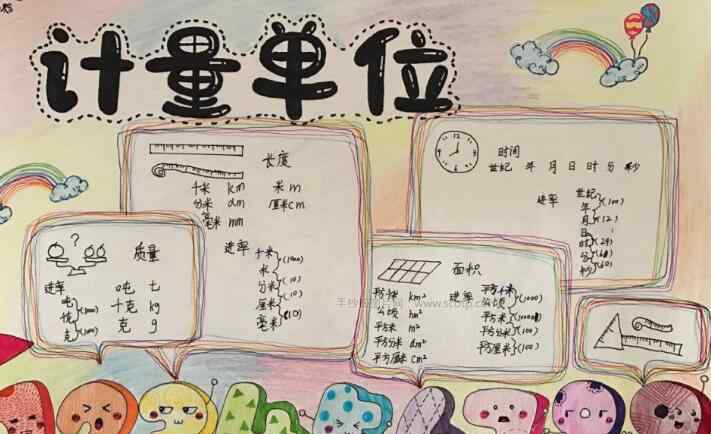 计量单位
12
3
6
9
长度
千米 km 米 m
分米 dm 厘米 cm
毫米 mm
进率
千米
(1000)
米
(10)
分米
(10)
厘米
(10)
毫米
时间
世纪 年 月 日 时 分 秒
进率
世纪
(100)
年
(12)
月
日
(24)
时
(60)
分
(60)
秒
?
质量
进率
吨 t
千克 kg
克 g
吨
克
面积
平方千米 km²
公顷 hm²
平方米 m²
平方分米 dm²
平方厘米 cm²
进率
平方千米
公顷
平方米
(100)
平方分米
(100)
平方厘米